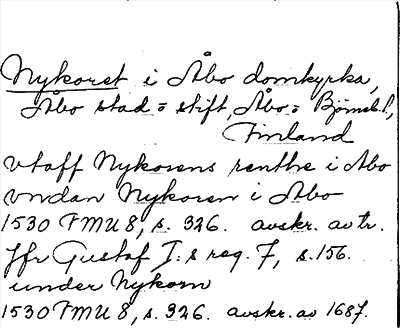 Nykoret i Åbo domkyrka,
Åbo stad = stift, Åbo = Björneb. l,
Finland
vtaff Nykorens renthe i Åbo
vndan Nykoren i Åbo
1530 FMU 8, s. 326. avskr. av tr.
Jfr Gustaf I:s reg. 7, s. 156.
under Nykorn
1530 FMU 8, s. 326. avskr. av 1687.